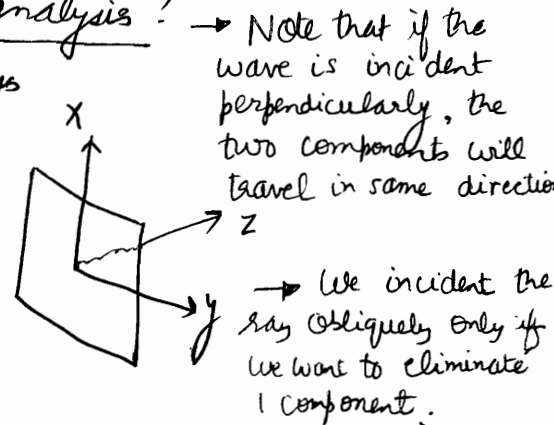 nalysis :
→ Note that if the
wave is incident
perpendicularly, the
two components will
travel in same direction
X
Z
y
→ We incident the
ray obliquely only if
we want to eliminate
1 component.